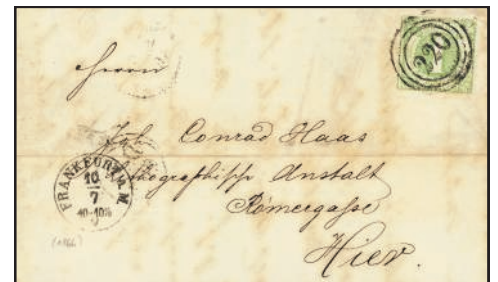 220
Herrn
Joh. Conrad Haas
Lithographische Anstalt
Römergasse
Hier.
FRANKFURT A. M.
10
7
10-10½
(1866)